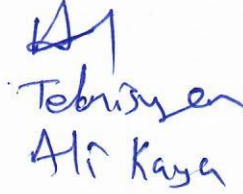 Teknisyen
Ali Kaya